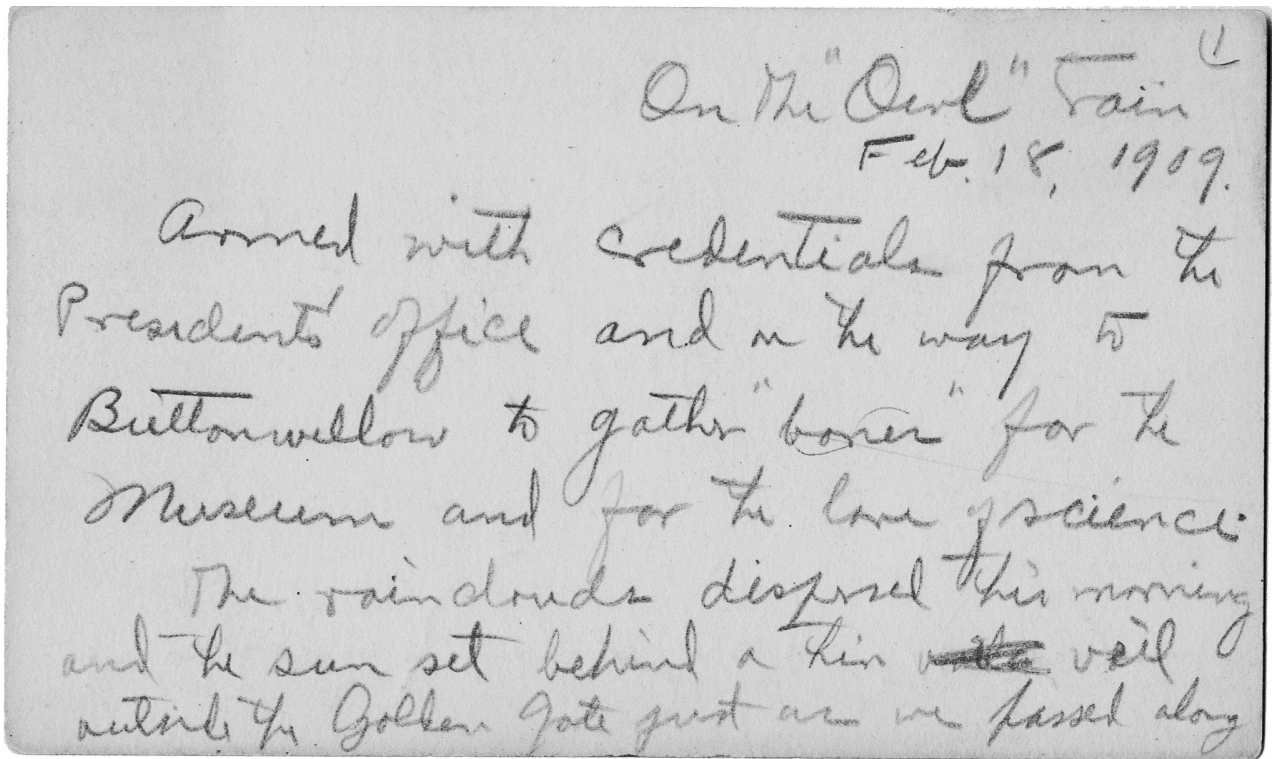 1
On the "Owl" Train
Feb. 18, 1909.
Armed with credentials from the
Presidents' office and on the way to
Buttonwillow to gather "bones" for the
Museum and for the love of science.
The rainclouds dispersed this morning
and the sun set behind a thin veil
outside the Golden Gate just as we passed along